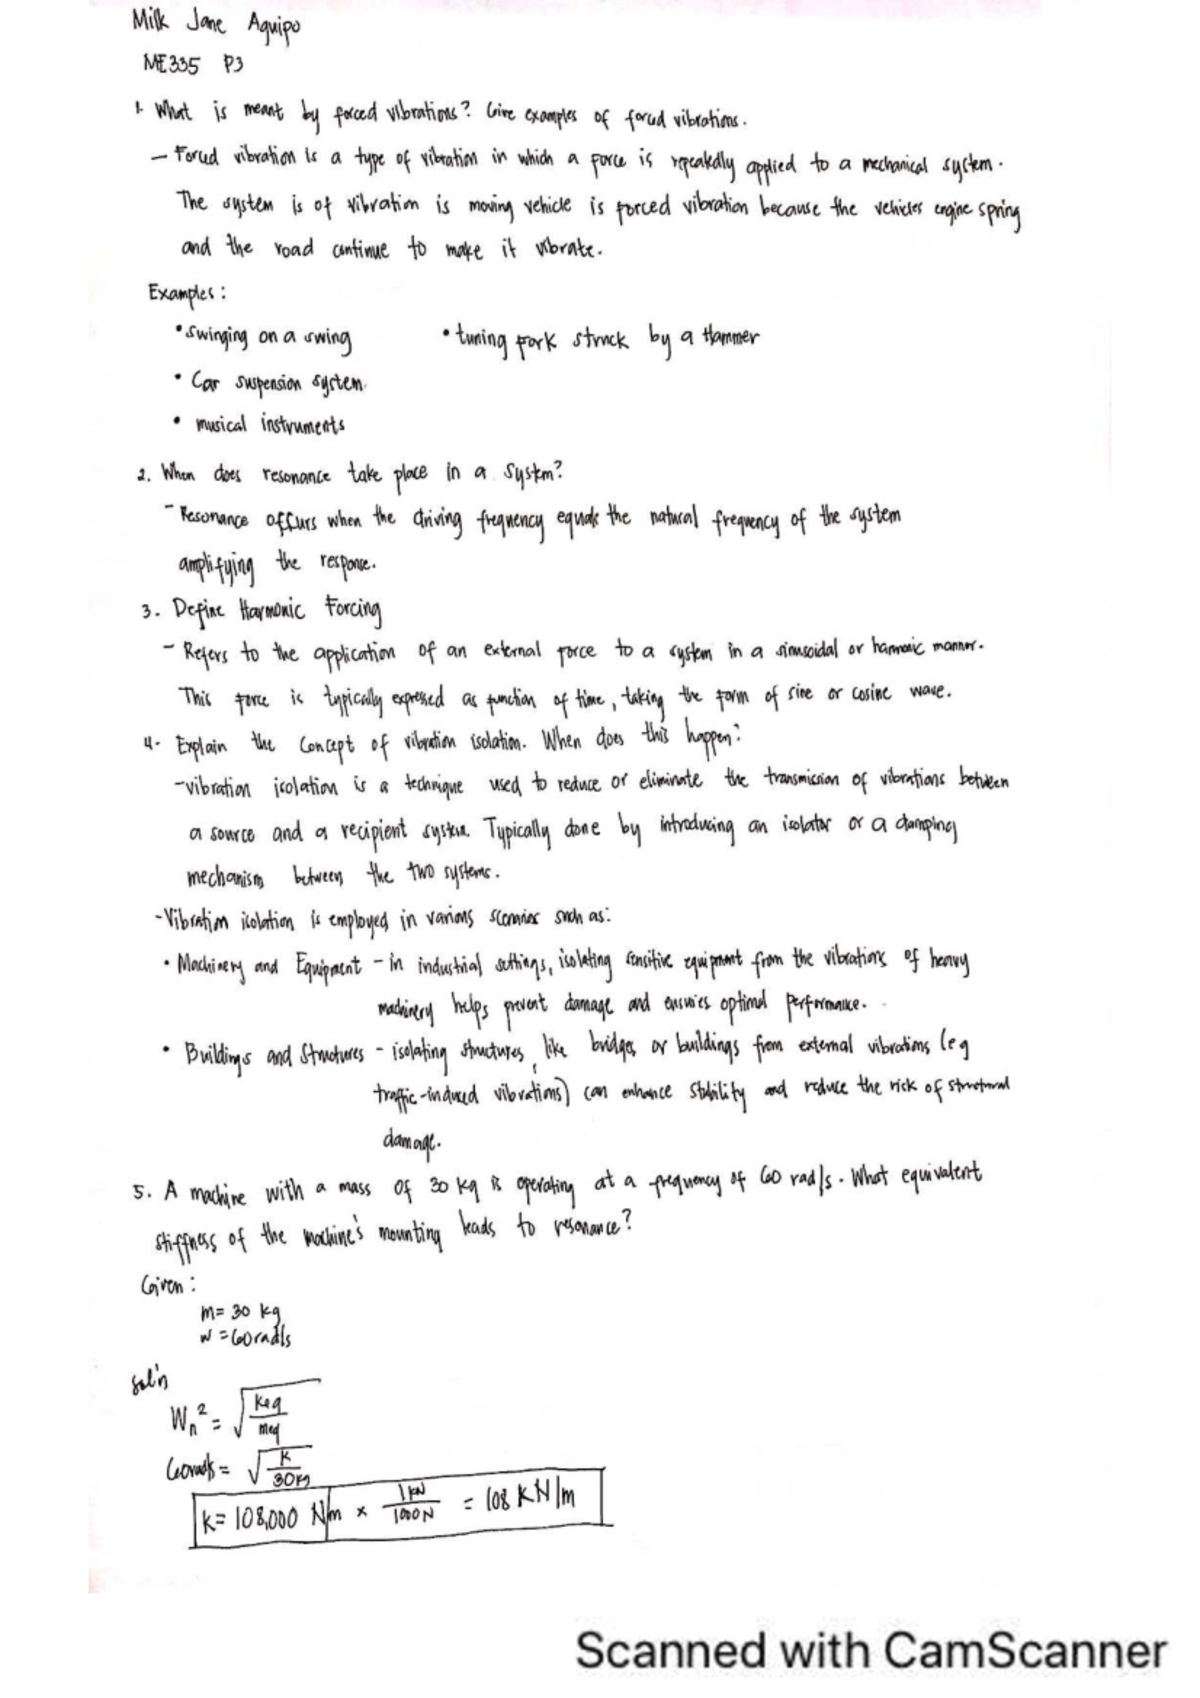 Milk Jane Aguipo
ME335 P3
1. What is meant by forced vibrations? Give examples of forced vibrations.
- Forced vibration is a type of vibration in which a force is repeatedly applied to a mechanical system.
The system is of vibration is moving vehicle is forced vibration because the vehicles engine spring
and the road continue to make it vibrate.
Examples:
• Swinging on a swing • tuning fork struck by a Hammer
• Car suspension system.
• musical instruments
2. When does resonance take place in a system?
- Resonance occurs when the driving frequency equals the natural frequency of the system
amplifying the response.
3. Define Harmonic Forcing
- Refers to the application of an external force to a system in a sinusoidal or harmonic manner.
This force is typically expressed as function of time, taking the form of sine or cosine wave.
4. Explain the concept of vibration isolation. When does this happen?
- vibration isolation is a technique used to reduce or eliminate the transmission of vibrations between
a source and a recipient system. Typically done by introducing an isolator or a damping
mechanism between the two systems.
- Vibration isolation is employed in various scenarios such as:
• Machinery and Equipment - in industrial settings, isolating sensitive equipment from the vibrations of heavy
machinery helps prevent damage and ensures optimal performance.
• Buildings and Structures - isolating structures, like bridges or buildings from external vibrations (eg
traffic-induced vibrations) can enhance stability and reduce the risk of structural
damage.
5. A machine with a mass of 30 kg is operating at a frequency of 60 rad/s. What equivalent
stiffness of the machine's mounting leads to resonance?
Given:
m= 30 kg
w = 60 rad/s
Sol'n
Wn² = √(keq/meq)
60 rad/s = √(k/30kg)
k= 108,000 N/m x 1 kN/1000N = 108 KN/m
Scanned with CamScanner